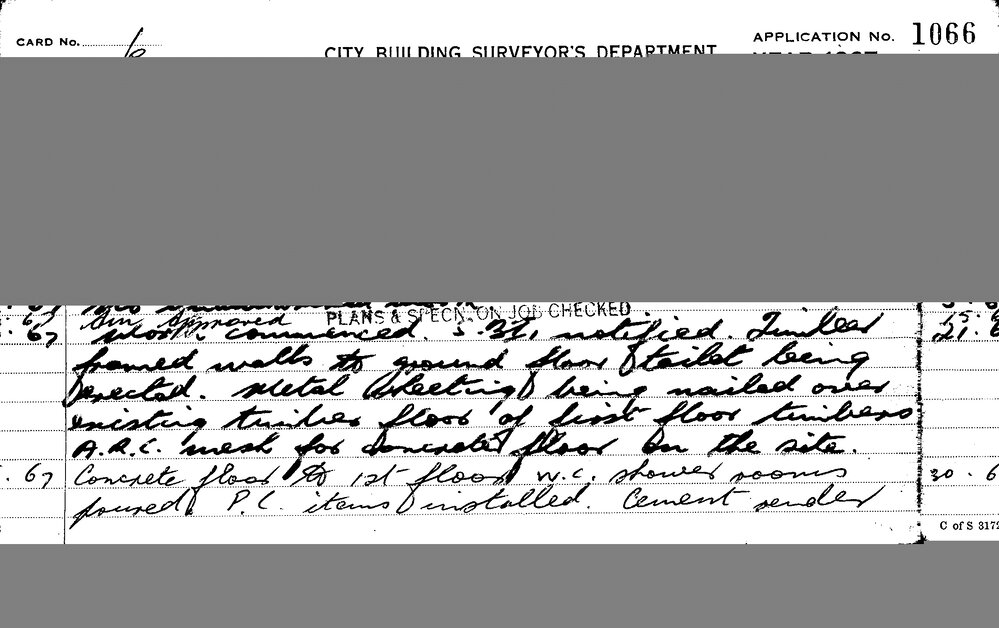 CARD No. 6
CITY BUILDING SURVEYOR'S DEPARTMENT
APPLICATION No. 1066
PLANS & SPECN. ON JOB CHECKED
Approved
67 Work commenced. S. 31, notified. Timber 21. 6
framed walls to ground floor toilet being
erected. Metal sheeting being nailed over
existing timber floor of first floor timbers
A.R.C. mesh for concrete floor on the site.
. 67 Concrete floor to 1st floor W.C. shower rooms 30 . 6
poured P.C. items installed. Cement render
C of S 3172